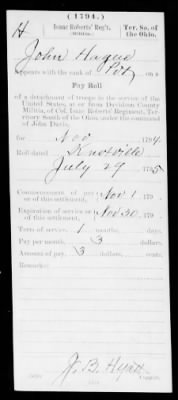 (1794.)
H
Isaac Roberts' Reg't,
Ter. So. of
the Ohio.
John Hague
Appears with the rank of Pvt on a
Pay Roll
of a detachment of troops in the service of the
United States, at or from Davidson County
Militia, of Col. Isaac Roberts' Regiment, Ter-
ritory South of the Ohio, under the command
of John Davis,
for Nov , 1794.
Roll dated Knoxville
July 29 , 1795
Commencement of pay or of this settlement, Nov 1 , 179 .
Expiration of service or of this settlement, Nov 30 , 179 .
Term of service, 1 months, days.
Pay per month, 3 dollars.
Amount of pay, 3 dollars, cents.
Remarks:
J. B. Hyatt
Copyist.